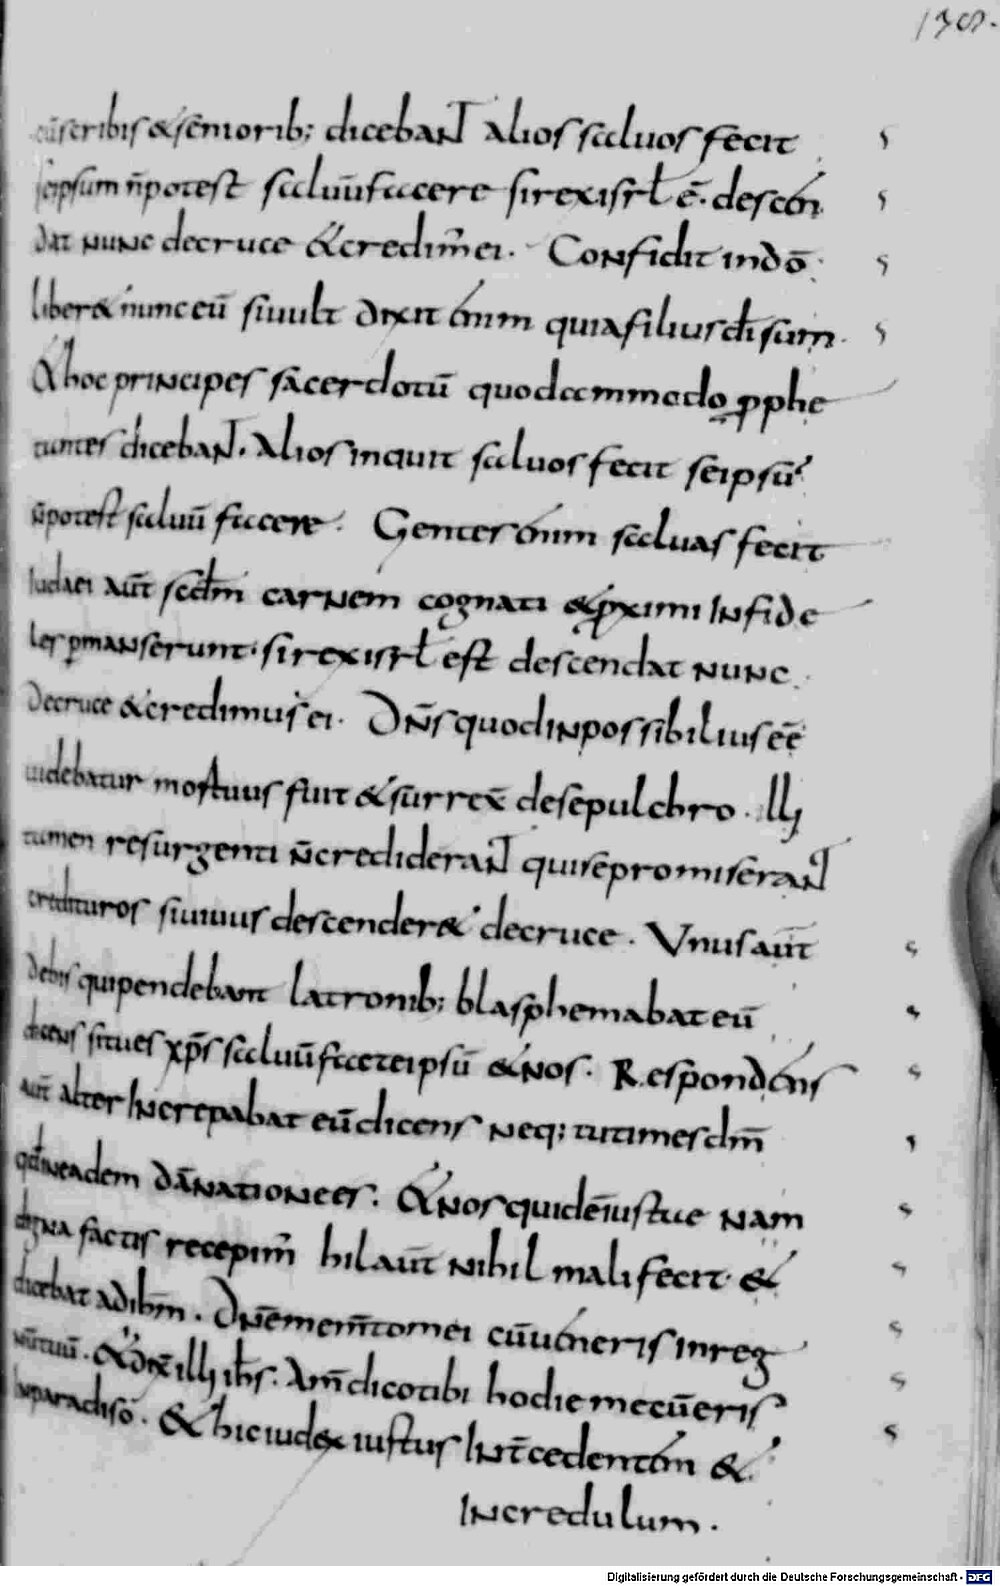 138.
cū scribis & seniorib; dicebant alios saluos fecit
seipsum n̄ potest saluū facere si rex isrl̄ ē. descen
dat nunc de cruce & credim̄ ei. Confidit in dō
liber& nunc eū si uult dixit enim quia filius dī sum.
& hoc principes sacerdotū quodammodo ꝓphe
tantes dicebant. Alios inquit saluos fecit seipsū
n̄ potest saluū facere. Gentes enim saluas fecit
Iudaei aut̄ scdm̄ carnem cognati & ꝓximi infide
les ꝑmanserunt. si rex isrl̄ est descendat nunc
de cruce & credimus ei. Dn̄s quod inpossibilius eē
uidebatur mortuus fuit & surrex̄ de sepulchro. Illi
tamen resurgenti n̄ crediderant qui se promiserant
credituros si uiuus descender& de cruce. Unus aut̄
de his qui pendebant latronib; blasphemabat eū
dicens si tu es xp̄s saluū fac teipsū & nos. Respondens
aut̄ alter increpabat eū dicens neq; tu times dm̄
qd̄ in eadem dānatione es. & nos quidē iuste nam
digna factis recepim̄ hic aut̄ nihil mali fecit. &
dicebat ad ihm̄. Dn̄e mem̄to mei cū ueneris in reg
nū tuū. & dix̄ illi ihs̄. Am̄ dico tibi hodie mecū eris
in paradiso. & hic iudex iustus int̄ credentem &
incredulum.
Digitalisierung gefördert durch die Deutsche Forschungsgemeinschaft - DFG